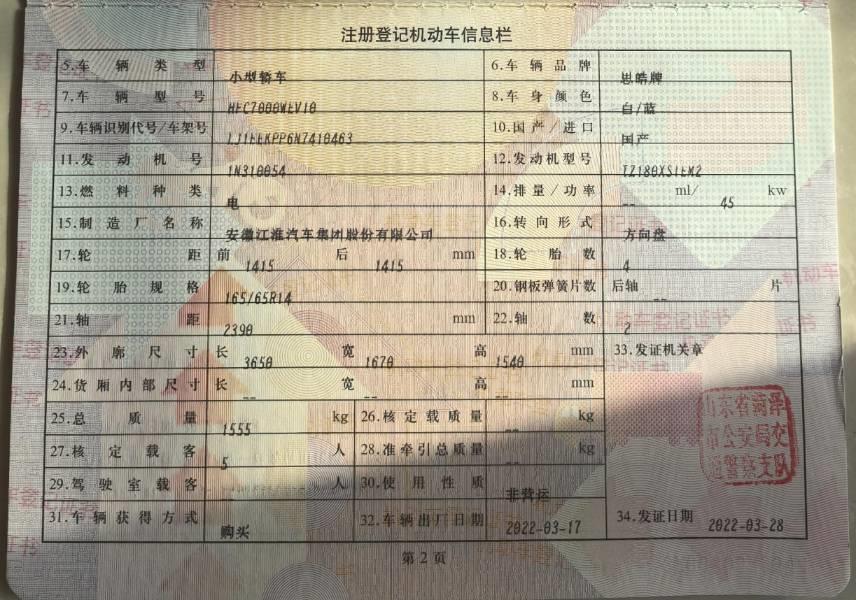 注册登记机动车信息栏
5.车辆类型 小型轿车 6.车辆品牌 思皓牌
7.车辆型号 HFC7000WEV10 8.车身颜色 白/蓝
9.车辆识别代号/车架号 LJ1EEKPP6N7410463 10.国产/进口 国产
11.发动机号 1N310054 12.发动机型号 TZ180XS1EM2
13.燃料种类 电 14.排量/功率 -- ml/ 45 kw
15.制造厂名称 安徽江淮汽车集团股份有限公司 16.转向形式 方向盘
17.轮距 前 1415 后 1415 mm 18.轮胎数 4
19.轮胎规格 165/65R14 20.钢板弹簧片数 后轴 -- 片
21.轴距 2390 mm 22.轴数 2
23.外廓尺寸 长 3650 宽 1670 高 1540 mm 33.发证机关章
24.货厢内部尺寸 长 -- 宽 -- 高 -- mm
25.总质量 1555 kg 26.核定载质量 -- kg
27.核定载客 5 人 28.准牵引总质量 -- kg
29.驾驶室载客 -- 人 30.使用性质 非营运
31.车辆获得方式 购买 32.车辆出厂日期 2022-03-17 34.发证日期 2022-03-28
山东省菏泽
市公安局交
通警察支队
第2页